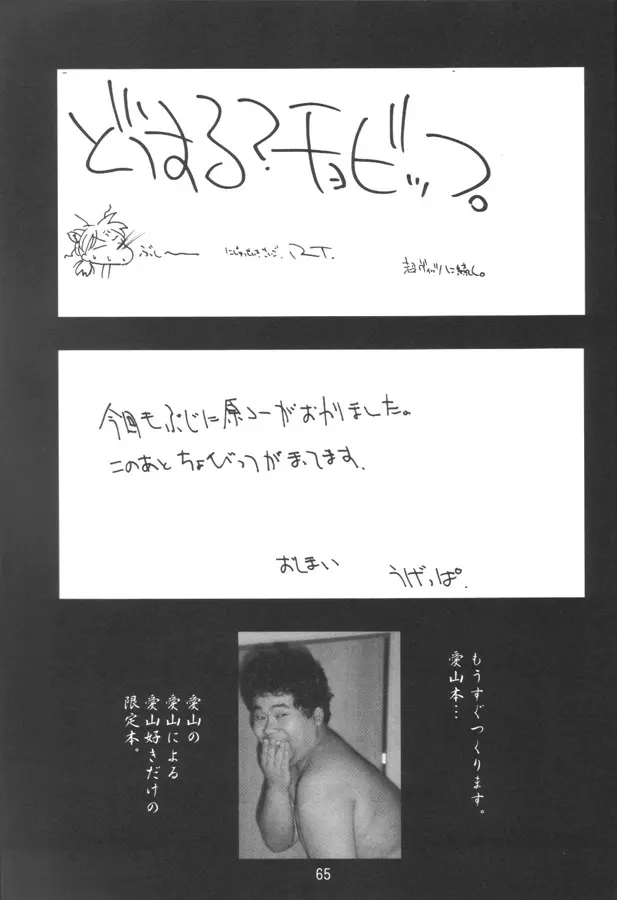 どうする?チョビッつ。
ぶしー
超ヴィッツに続く。
今回もぶじに原コーがおわりました。
このあとちょびっつがまってます
おしまい
うげっぱ.
もうすぐつくります。
愛山本…
愛山の
愛山による
愛山好きだけの
限定本。
65